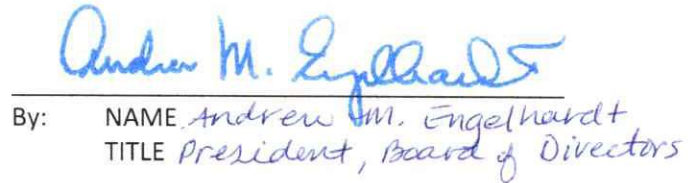 Andrew M. Engelhardt
By: NAME Andrew M. Engelhardt
TITLE President, Board of Directors